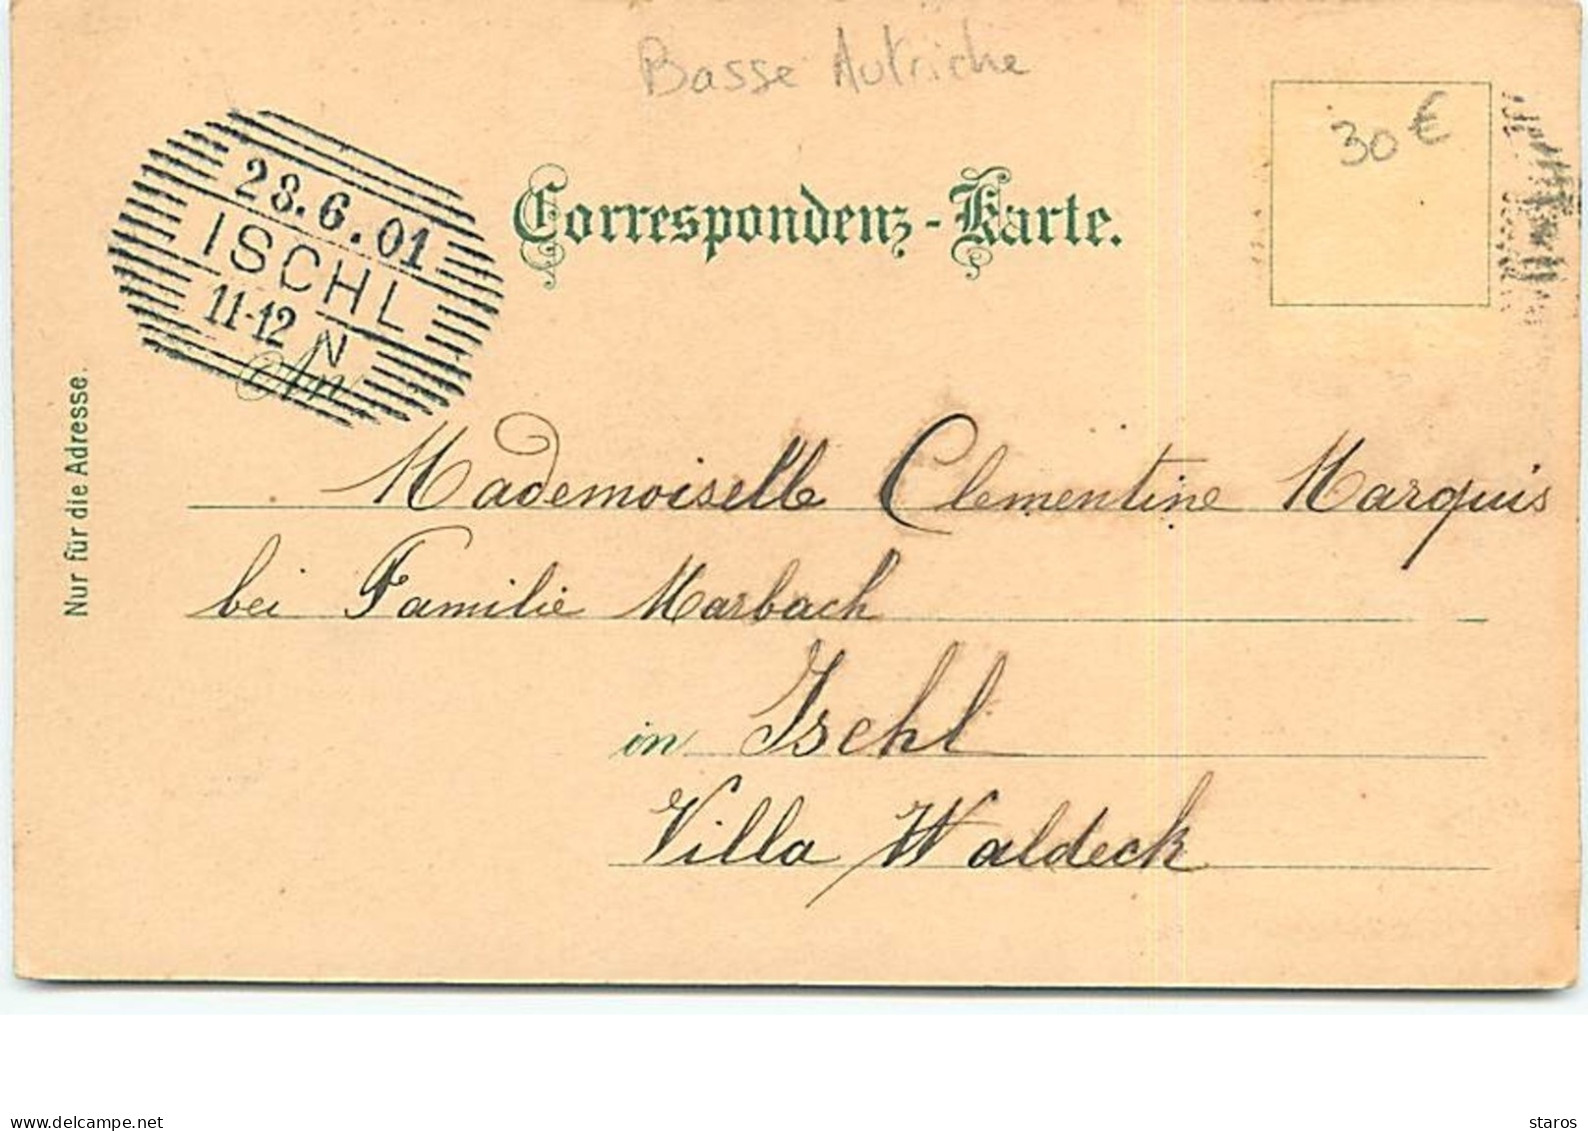 Basse Autriche
30 €
28.6.01
ISCHL
11-12 N
Correspondenz-Karte.
An
Nur für die Adresse.
Mademoiselle Clementine Marquis
bei Familie Marbach
in Ischl
Villa Waldeck
my-postcards.net
staros